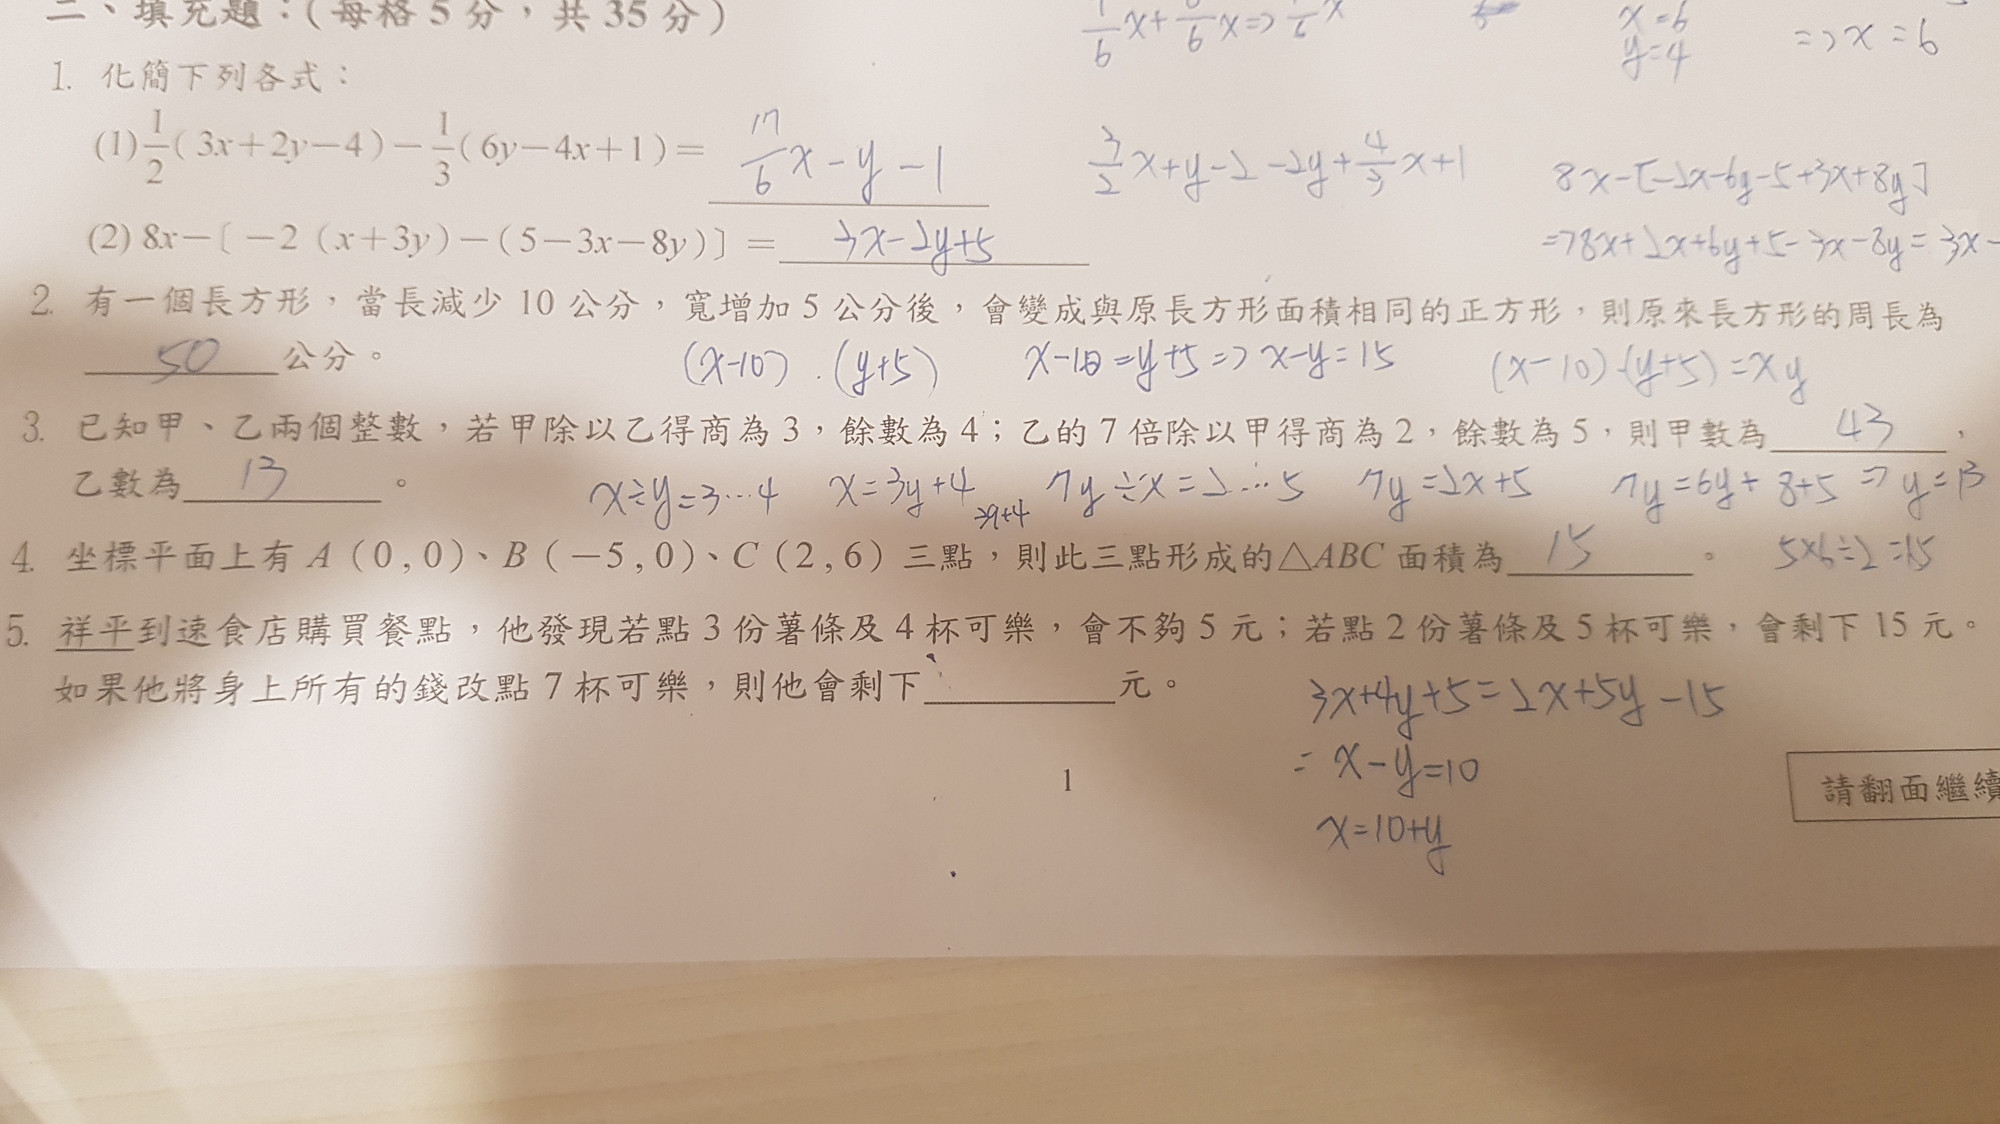 二、填充題：(每格5分，共35分)
x=6
y=4
=>x=6
1. 化簡下列各式：
(1) 1/2(3x+2y−4)−1/3(6y−4x+1)= 17/6x-y-1
3/2x+y-2-2y+4/3x+1
8x-[-2x-6y-5+3x+8y]
(2) 8x−〔−2（x+3y）−(5−3x−8y)〕= 3x-2y+5
=>8x+2x+6y+5-3x-8y=3x-
2. 有一個長方形，當長減少10公分，寬增加5公分後，會變成與原長方形面積相同的正方形，則原來長方形的周長為
50 公分。
(x-10).(y+5) x-10=y+5=>x-y=15 (x-10).(y+5)=xy
3. 已知甲、乙兩個整數，若甲除以乙得商為3，餘數為4；乙的7倍除以甲得商為2，餘數為5，則甲數為 43 ，
乙數為 13 。
x÷y=3…4 x=3y+4 7y÷x=2…5 7y=2x+5 7y=6y+8+5=>y=13
4. 坐標平面上有A（0,0）、B（−5,0）、C（2,6）三點，則此三點形成的△ABC面積為 15 。
5x6÷2=15
5. 祥平到速食店購買餐點，他發現若點3份薯條及4杯可樂，會不夠5元；若點2份薯條及5杯可樂，會剩下15元。
如果他將身上所有的錢改點7杯可樂，則他會剩下＿＿＿＿元。
3x+4y+5=2x+5y-15
= x-y=10
x=10+y
1
請翻面繼續